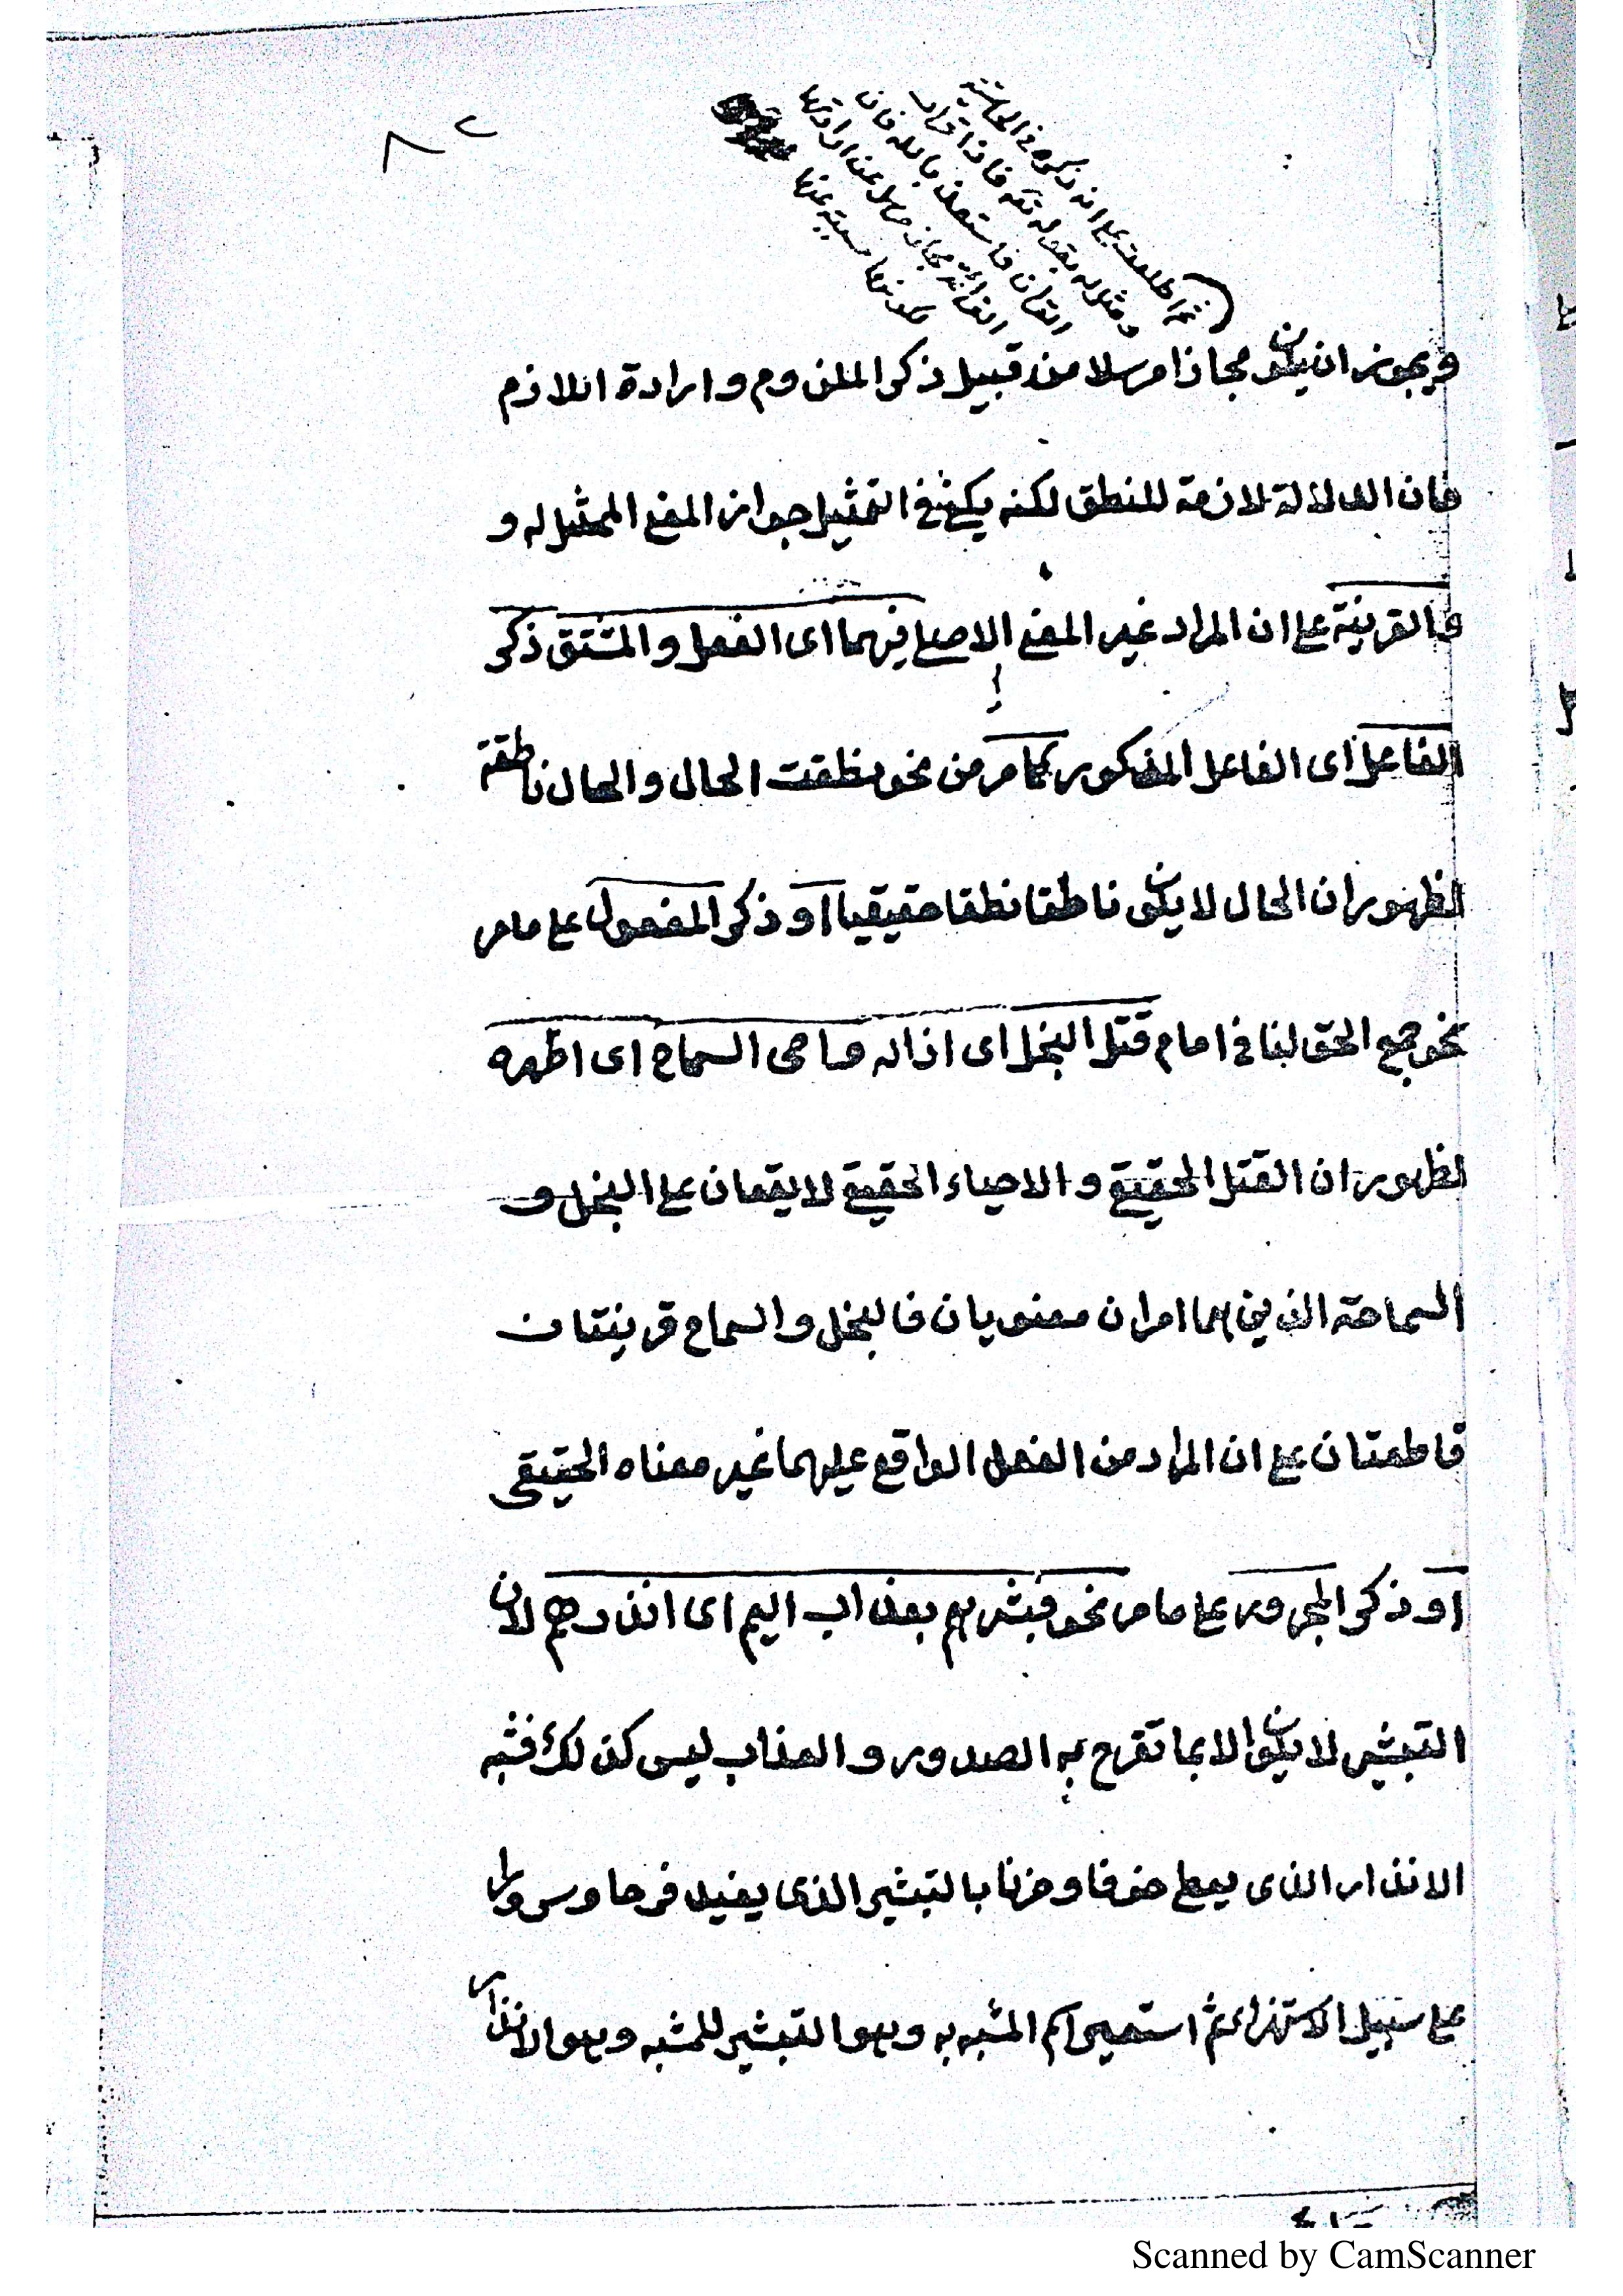 ٨٢
ثم اطلعت على انه ذكره في الحاشية
ومثل له بقوله تعه فاذا قرأت
القرآن فاستعذ بالله فان
القرائة مجاز مرسل عن ارادتها
لكونها مسببة عنها
ويجوز ان يكون مجازا مرسلا من قبيل ذكر الملزوم وارادة اللازم
فان الدلالة لازمة للنطق لكنه يكفي في التمثيل جواز المعنى الممثل له و
القرينة على ان المراد غير المعنى الاصلي فيهما اى الفعل والمشتق ذكر
الفاعل اى الفاعل المذكور كما مر من نحو نطقت الحال والحال ناطقة
لظهور ان الحال لا يكون ناطقا نطقا حقيقيا او ذكر المفعول على ما مر
نحو جمع الحق لنا في امام قتل البخل اى ازاله واحى السماح اى اظهره
لظهور ان القتل الحقيقي و الاحياء الحقيقي لا يقعان على البخل و
السماحة الذين هما امران معنويان فالبخل والسماح قرينتان
قاطعتان على ان المراد من الفعل الواقع عليهما غير معناه الحقيقى
او ذكر المجرور على ما مر نحو فبشرهم بعذاب اليم اى انذرهم لان
التبشير لا يكون الا بما تفرح به الصدور و العذاب ليس كذلك فشبه
الانذار الذى يعطى خوفا وحزنا بالتبشير الذى يفيد فرحا وسرورا
على سبيل الاستهزاء ثم استعير اسم المشبه به وهو التبشير للمشبه وهو الانذار
Scanned by CamScanner